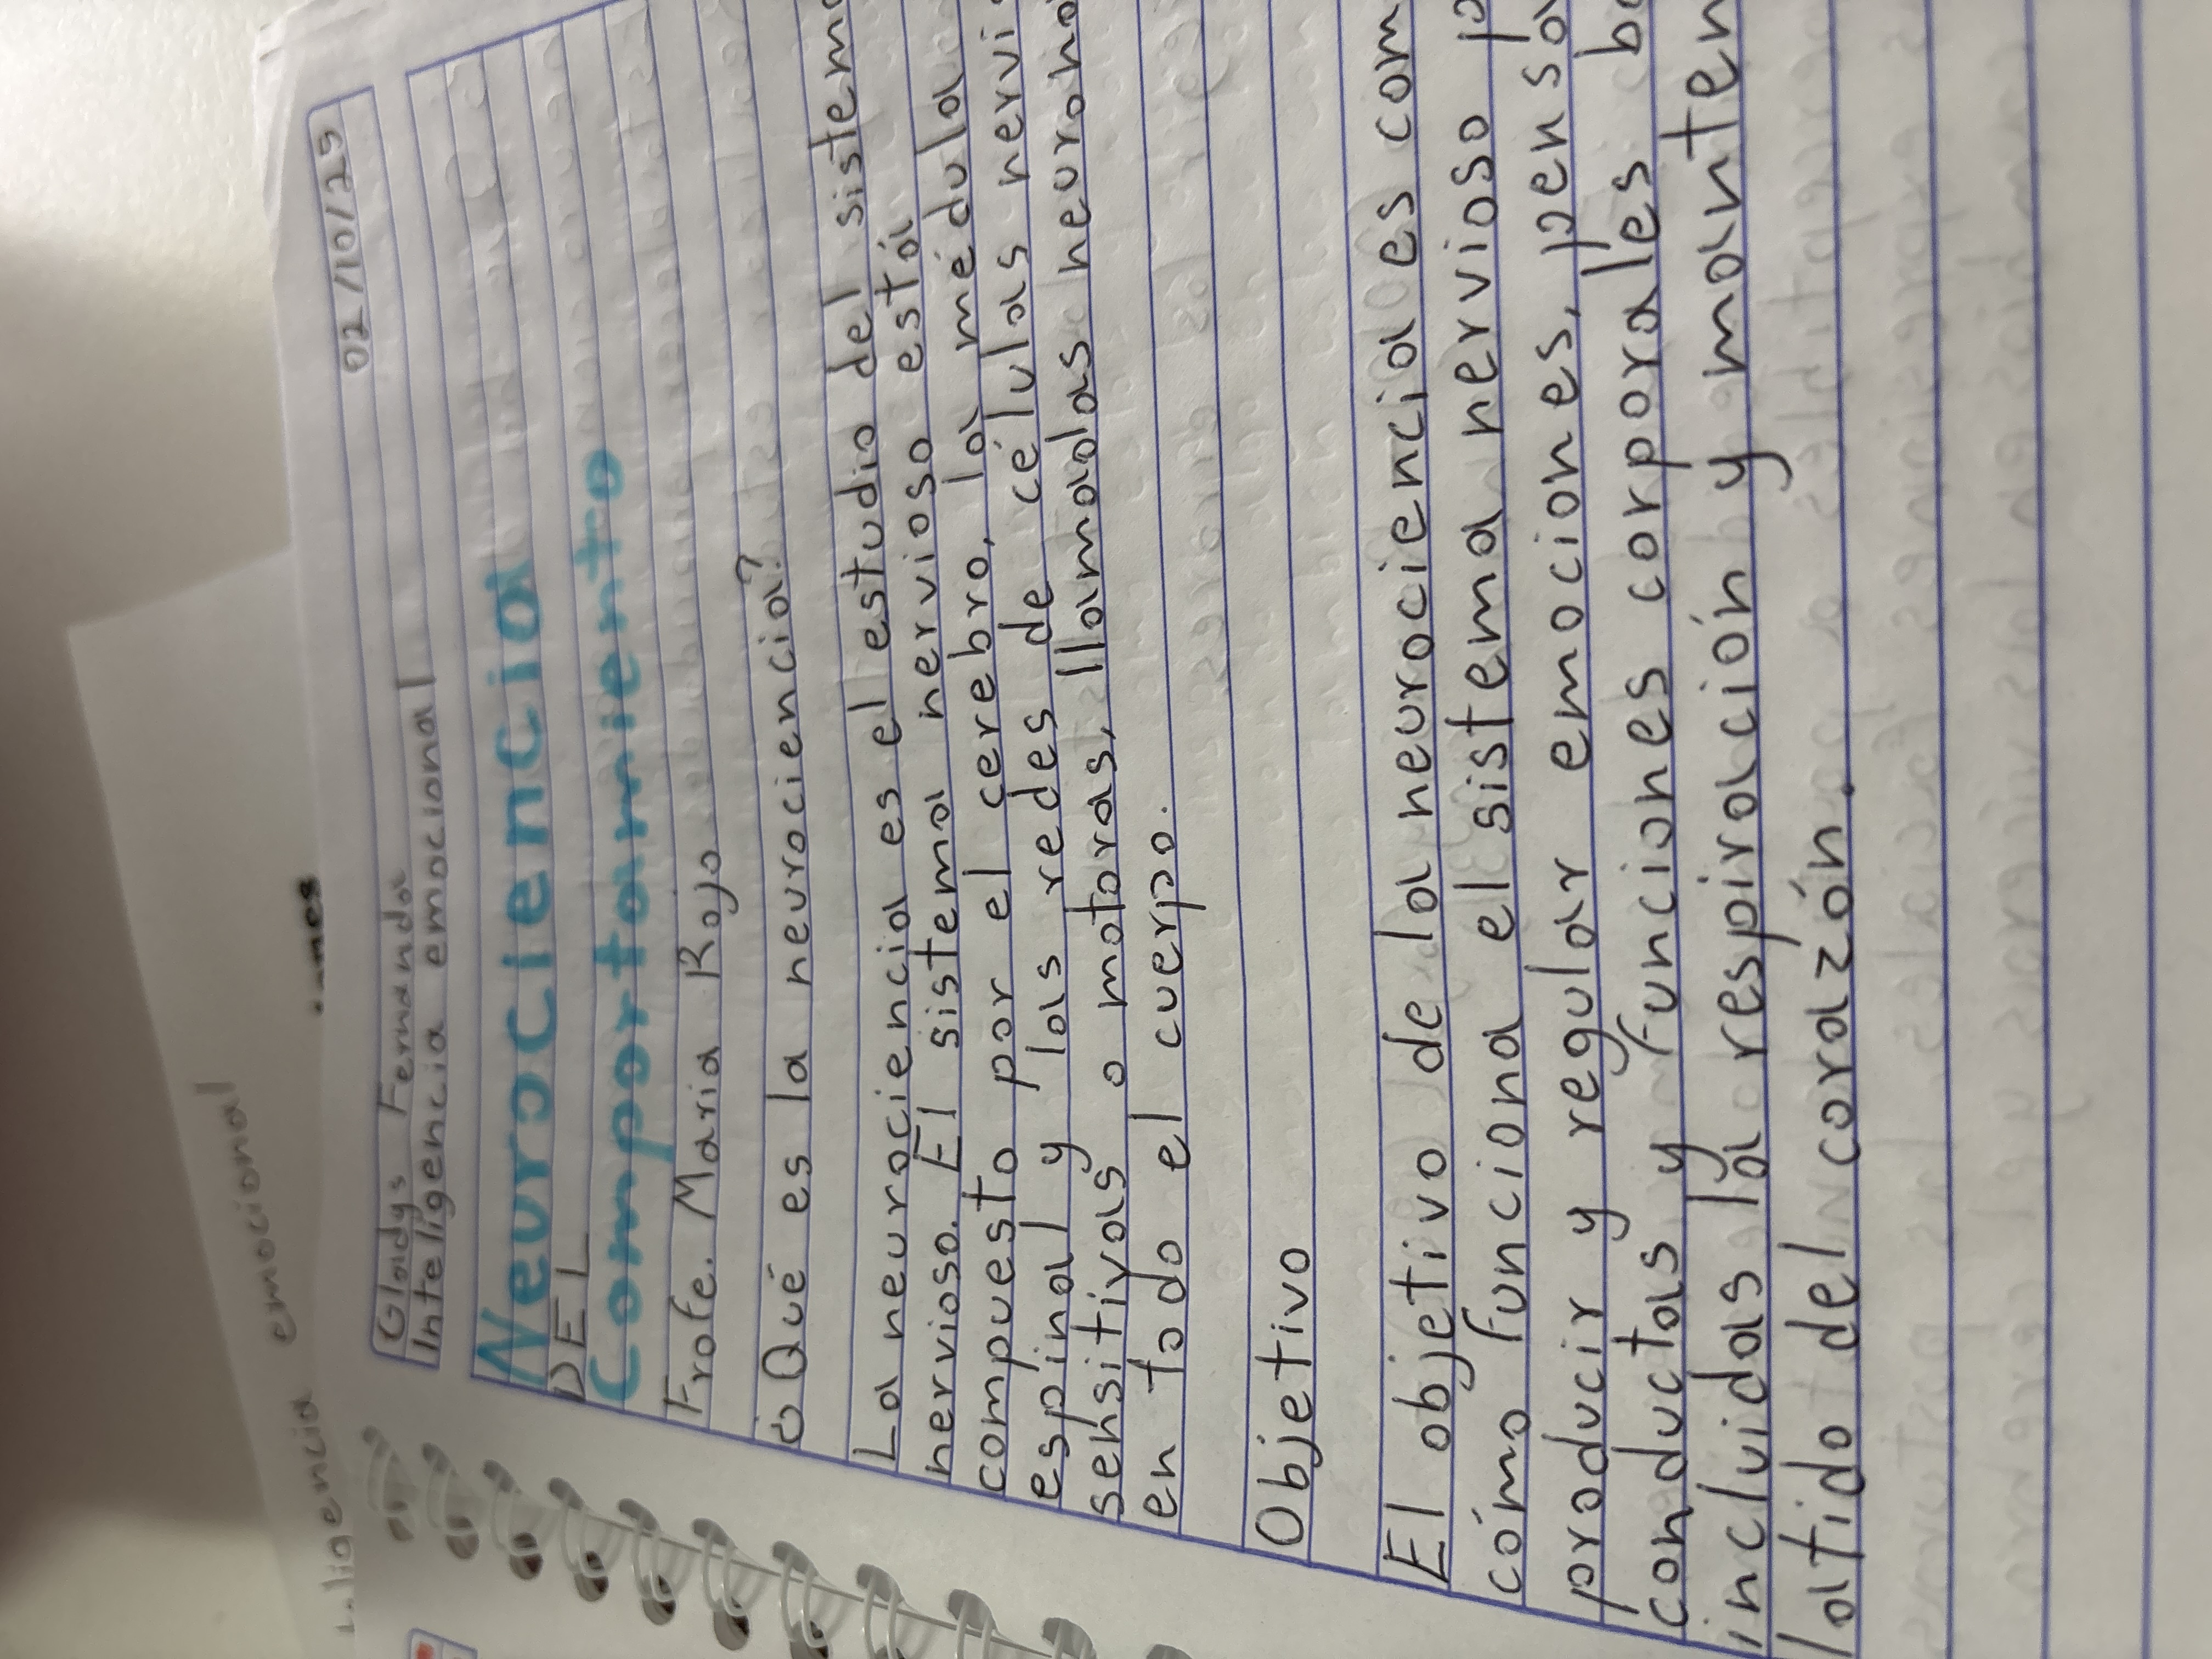 emocional
02/10/25
Gladys Fernanda
Inteligencia emocional
Neurociencia
DEL
Comportamiento
Profe. Maria Rojo
¿Qué es la neurociencia?
La neurociencia es el estudio del sistema
nervioso. El sistema nervioso está
compuesto por el cerebro, la médula
espinal y las redes de células nervi
sensitivas o motoras, llamadas neurona
en todo el cuerpo.
Objetivo
El objetivo de la neurociencia es com
cómo funciona el sistema nervioso p
producir y regular emociones, pensa
conductas y funciones corporales bá
incluidas la respiración y manten
latido del corazón.